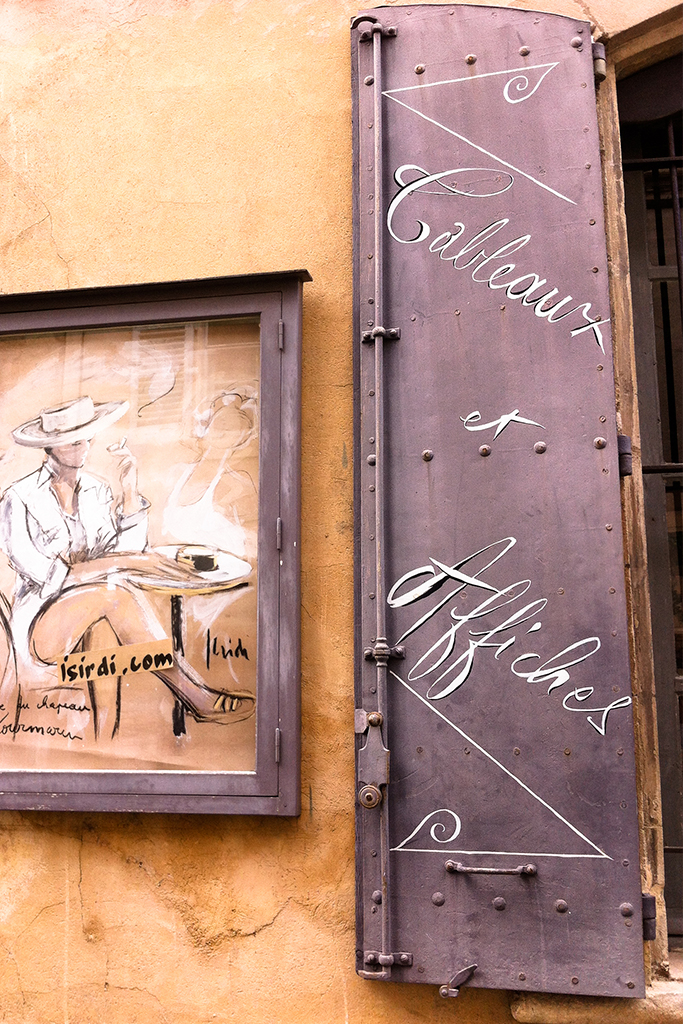 isirdi.com
Isirdi
du chapeau
Lourmarin
Tableaux
et
Affiches